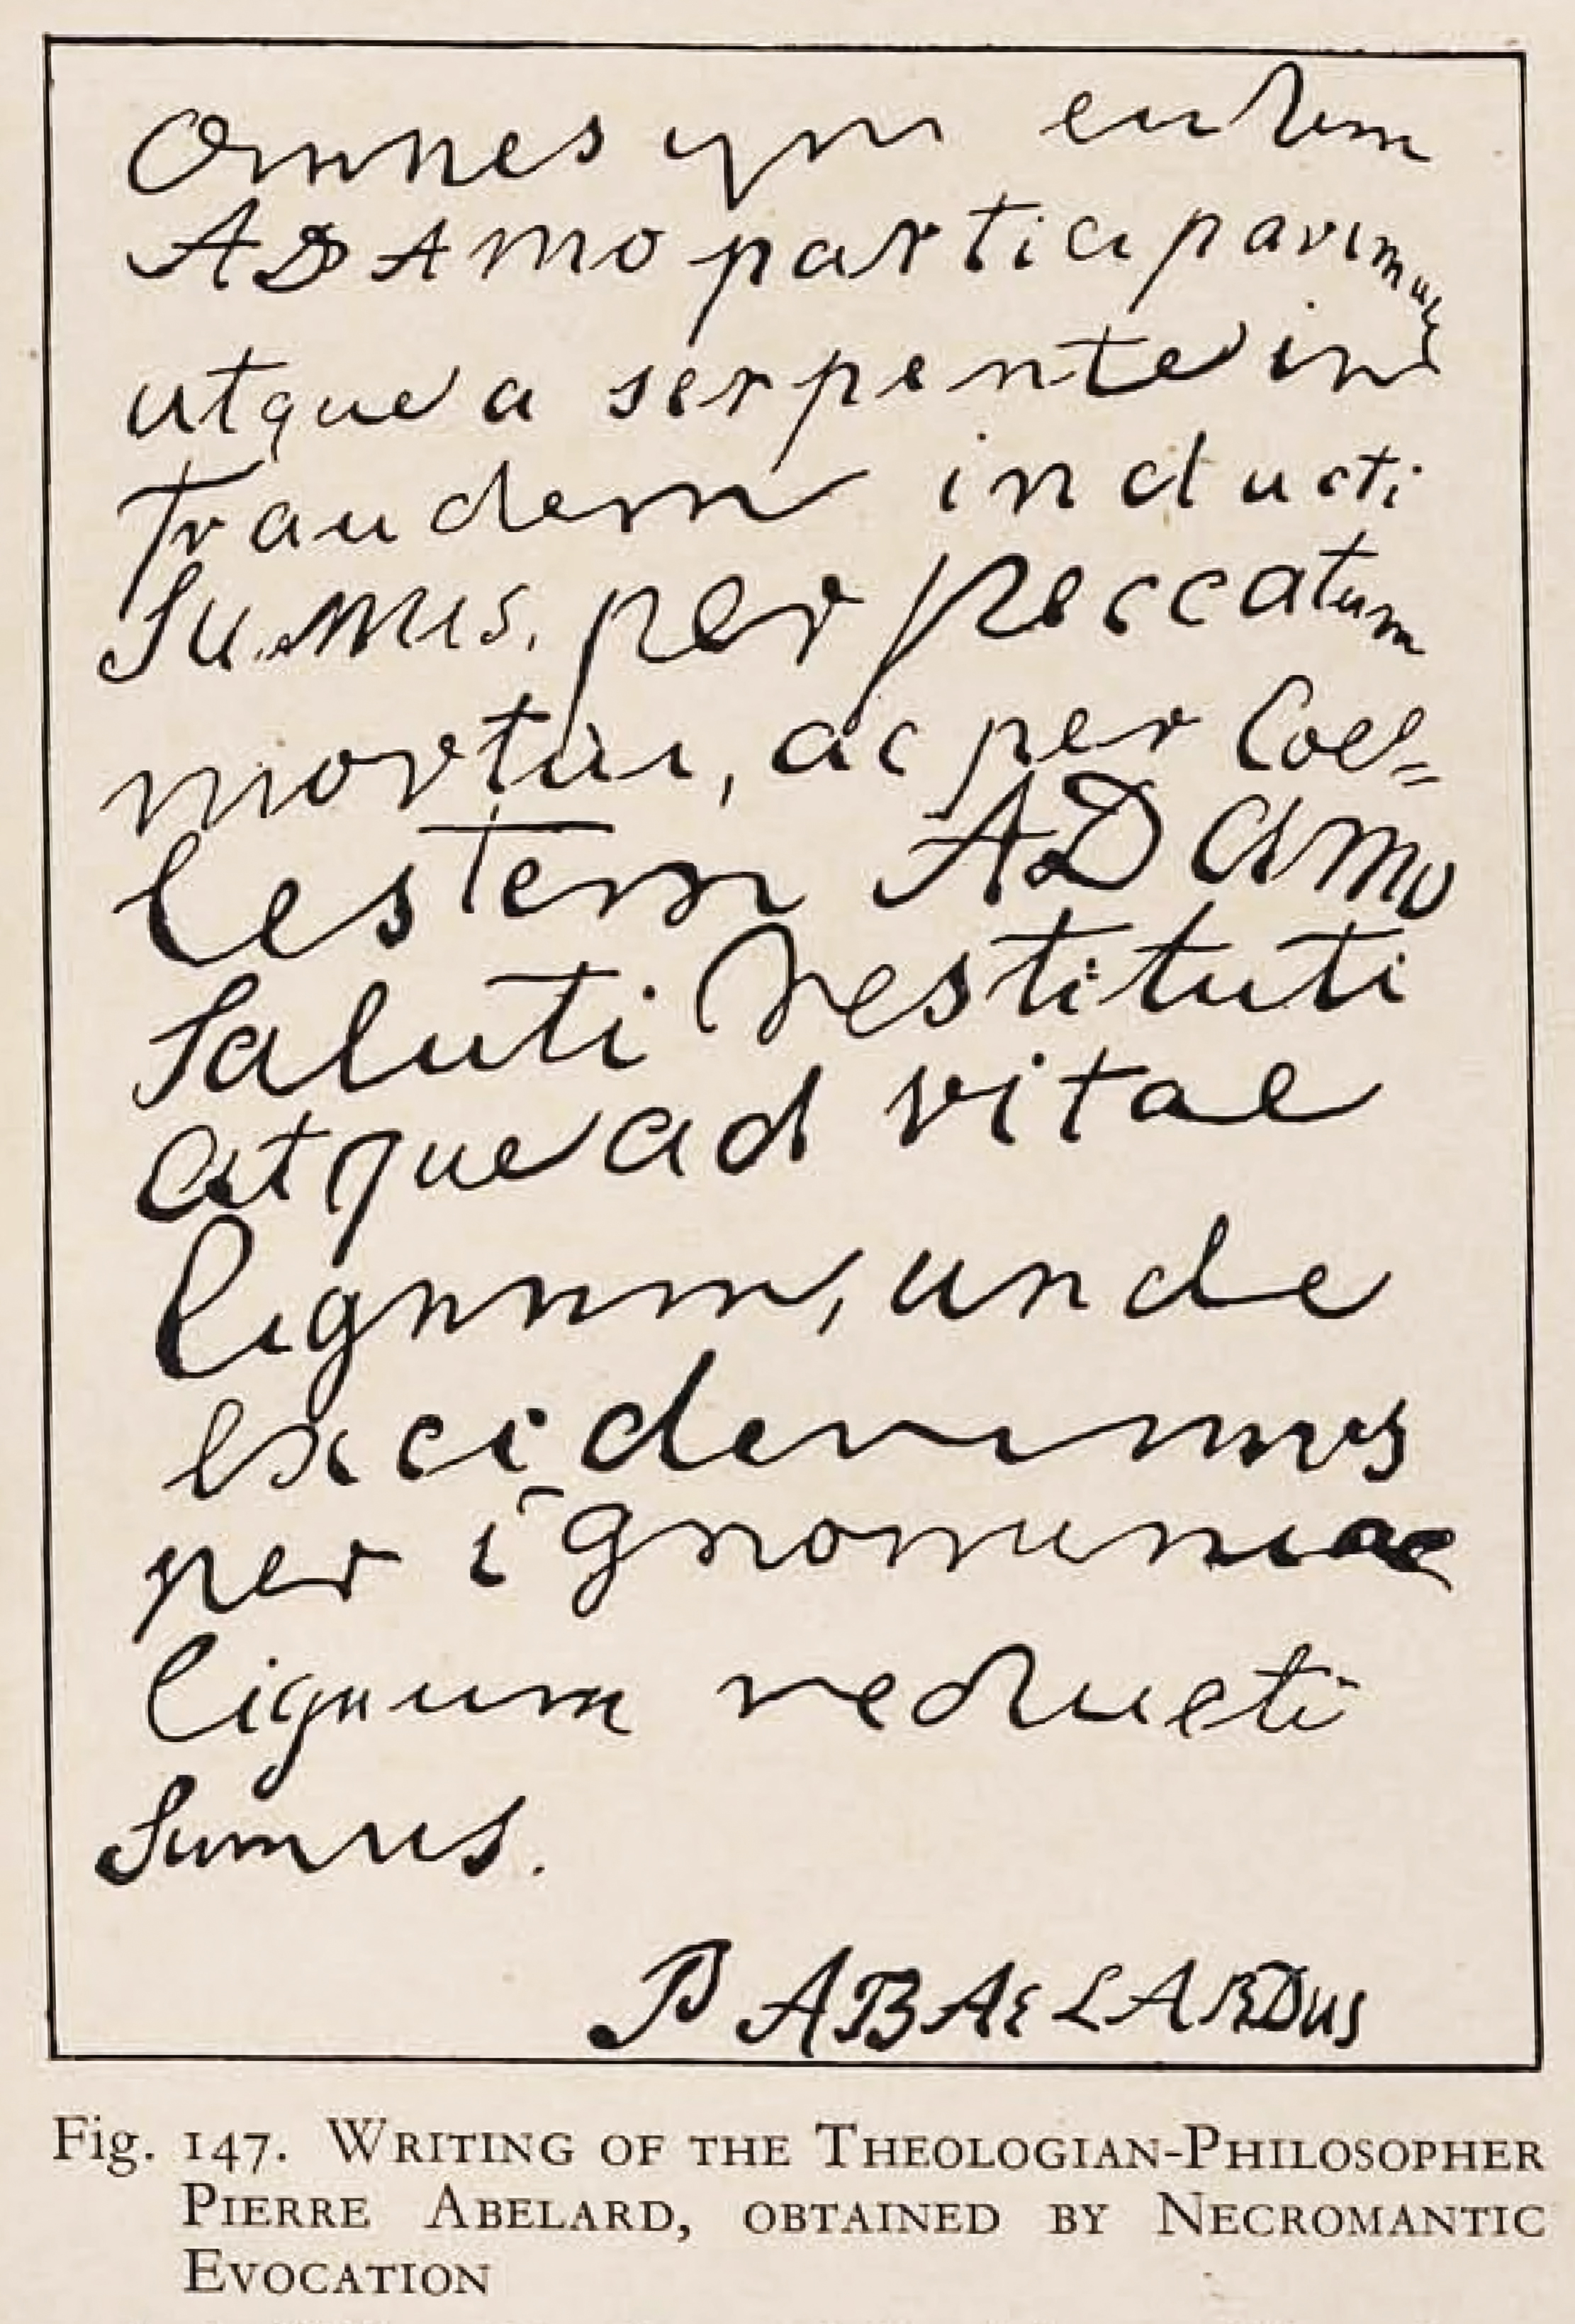 Omnes qui eidem
ADAmo participavimus
utque a serpente in
fraudem inducti
Sumus, per peccatum
mortui, ac per Coe=
lestem ADamo
Saluti restituti
atque ad vitae
lignum, unde
excideramus
per ignominiae
lignum reducti
Sumus.
P ABAELARDus
Fig. 147. WRITING OF THE THEOLOGIAN-PHILOSOPHER
PIERRE ABELARD, OBTAINED BY NECROMANTIC
EVOCATION